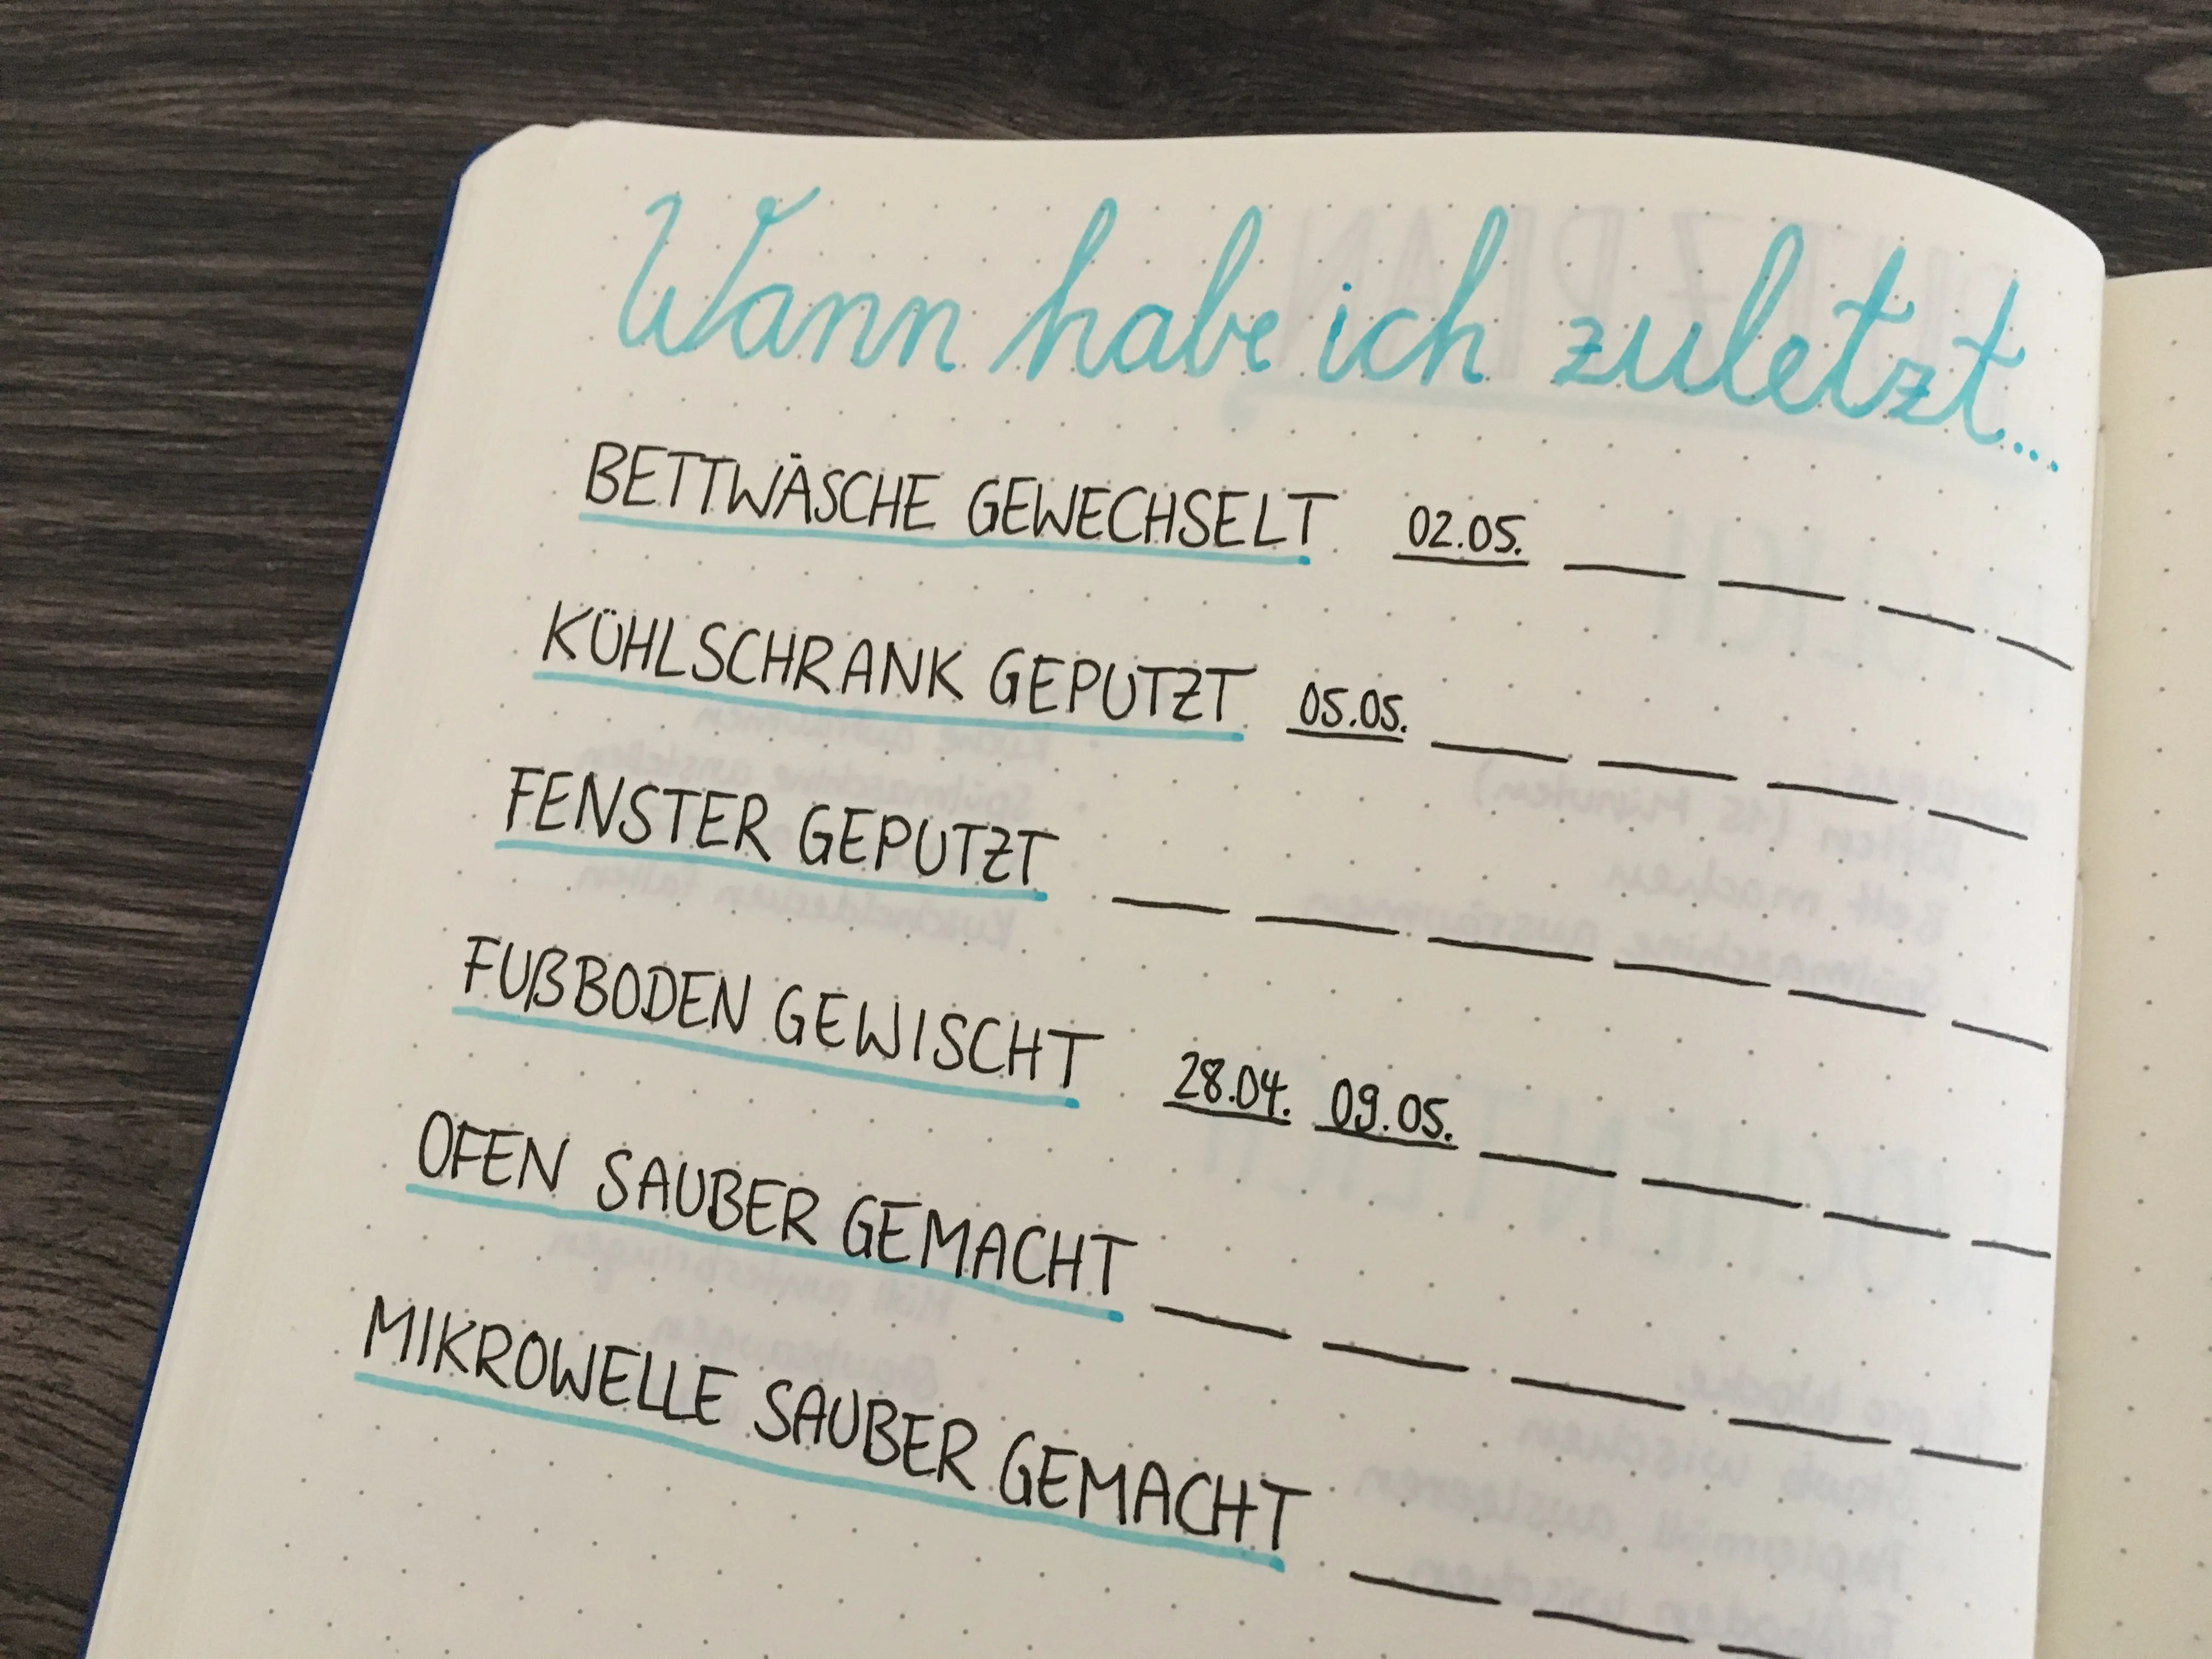 Wann habe ich zuletzt....
BETTWÄSCHE GEWECHSELT 02.05.
KÜHLSCHRANK GEPUTZT 05.05.
FENSTER GEPUTZT
FUẞBODEN GEWISCHT 28.04. 09.05.
OFEN SAUBER GEMACHT
MIKROWELLE SAUBER GEMACHT